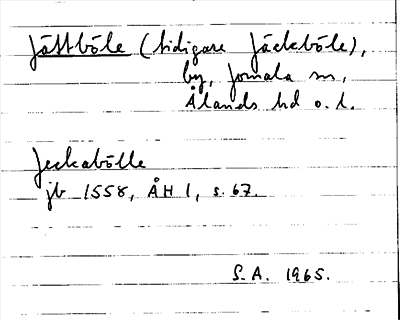 Jättböle (tidigare Jäckböle),
by, Jomala sn,
Ålands hd o. l.
Jeckabölle
jb 1558, ÅH 1, s. 67.
S.A. 1965.